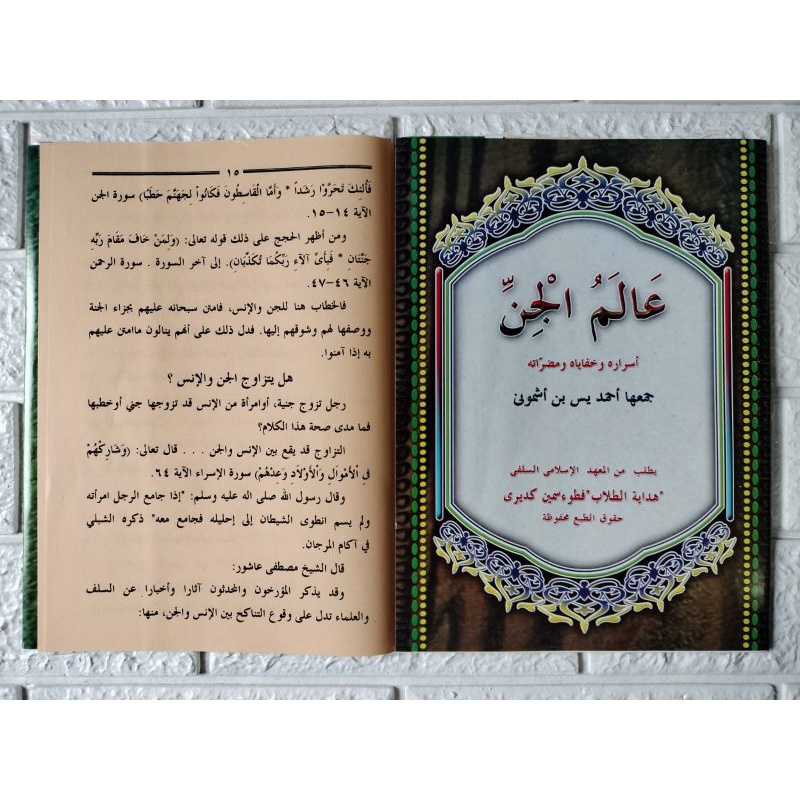 ١٥
فَأُلئِكَ تَحَرَّوْا رَشَداً * وَأَمَّا الْقَاسِطُونَ فَكَانُواْ لِجَهَنَّمَ حَطَبًا) سورة الجن
الآية ١٤-١٥.
ومن أظهر الحجج على ذلك قوله تعالى: (وَلِمَنْ خَافَ مَقَامَ رَبِّهِ
جَنَّتَانِ * فَبِأَىِّ آلَآءِ رَبِّكُمَا تُكَذِّبَانِ). إلى آخر السورة . سورة الرحمن
الآية ٤٦-٤٧.
فالخطاب هنا للجن والإنس، فامتن سبحانه عليهم بجزاء الجنة
ووصفها لهم وشوقهم إليها. فدل ذلك على أنهم ينالون ماامتن عليهم
به إذا آمنوا.
هل يتزاوج الجن والإنس ؟
رجل تزوج جنية، أوامرأة من الإنس قد تزوجها جني أوخطبها
فما مدى صحة هذا الكلام؟
التزاوج قد يقع بين الإنس والجن . . . قال تعالى: (وَشَارِكْهُمْ
فِى الْأَمْوَالِ وَالْأَوْلَادِ وَعِدْهُمْ) سورة الإسراء الآية ٦٤.
وقال رسول الله صلى اله عليه وسلم: "إذا جامع الرجل امرأته
ولم يسم انطوى الشيطان إلى إحليله فجامع معه" ذكره الشبلي
في آكام المرجان.
قال الشيخ مصطفى عاشور:
وقد يذكر المؤرخون والمحدثون آثارا وأخبارا عن السلف
والعلماء تدل على وقوع التناكح بين الإنس والجن، منها:
عَالَمُ الْجِنِّ
أسراره وخفاياه ومضرّاته
جمعها أحمد يس بن أشمونى
يطلب من المعهد الإسلامى السلفى
"هداية الطلاب" فطوء سمين كديرى
حقوق الطبع محفوظة